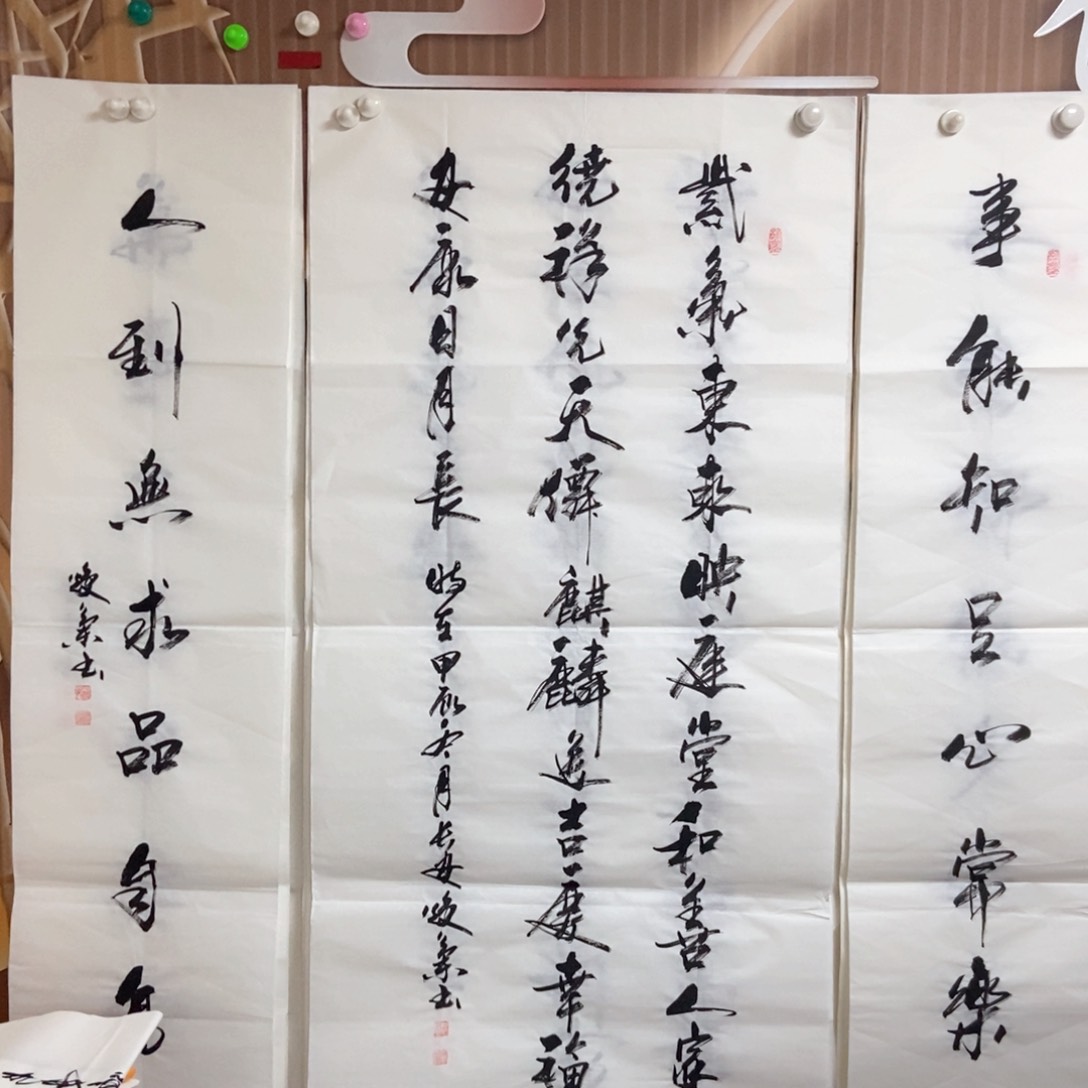 事能知足心常樂
紫氣東來映庭堂和善人家
繞祥光天麒麟送吉慶幸福
安康日月長
時在甲辰冬月長安書
人到無求品自高
書